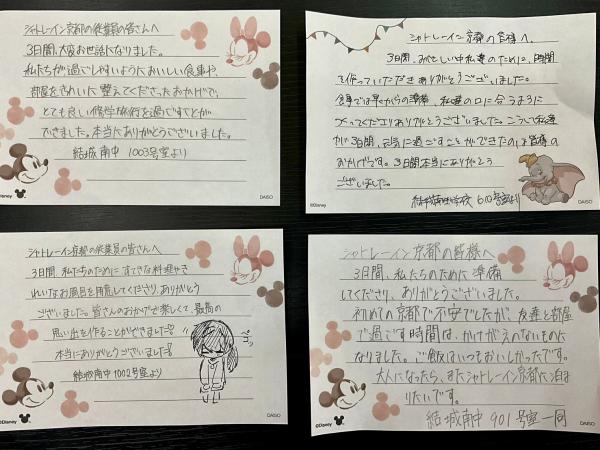 シャトレーイン京都の従業員の皆さんへ
3日間、大変お世話になりました。
私たちが過ごしやすいようにおいしい食事や、
部屋をきれいに整えてくださったおかげで、
とても良い修学旅行を過ごすことが
できました。本当にありがとうございました。
結城南中 1003号室より
©Disney
DAISO
シャトレーイン京都の皆様へ。
3日間、お忙しい中私達のために、時間
を作っていただきありがとうございました。
食事では早くからの準備、私達の口に合うように
つくってくださりありがとうございました。こうして私達
が3日間、元気に過ごすことができたのは皆様の
おかげです。3日間本当にありがとう
ございました。
結城南中学校 610号室より
©Disney
DAISO
シャトレーイン京都の従業員の皆さんへ
3日間、私たちのために すてきな料理やき
れいなお風呂を用意してくださり、ありがとう
ございました。皆さんのおかげで楽しくて、最高の
思い出を作ることができました!
本当にありがとうございました!
結城南中 1002号室より
©Disney
DAISO
シャトレーイン京都の皆様へ
3日間、私たちのために準備
してくださり、ありがとうございました。
初めての京都で不安でしたが、友達と部屋
で過ごす時間は、かけがえのないものに
なりました。ご飯はいつもおいしかったです。
大人になったら、またシャトレーイン京都に泊ま
りたいです。
結城南中 901号室一同
©Disney
DAISO